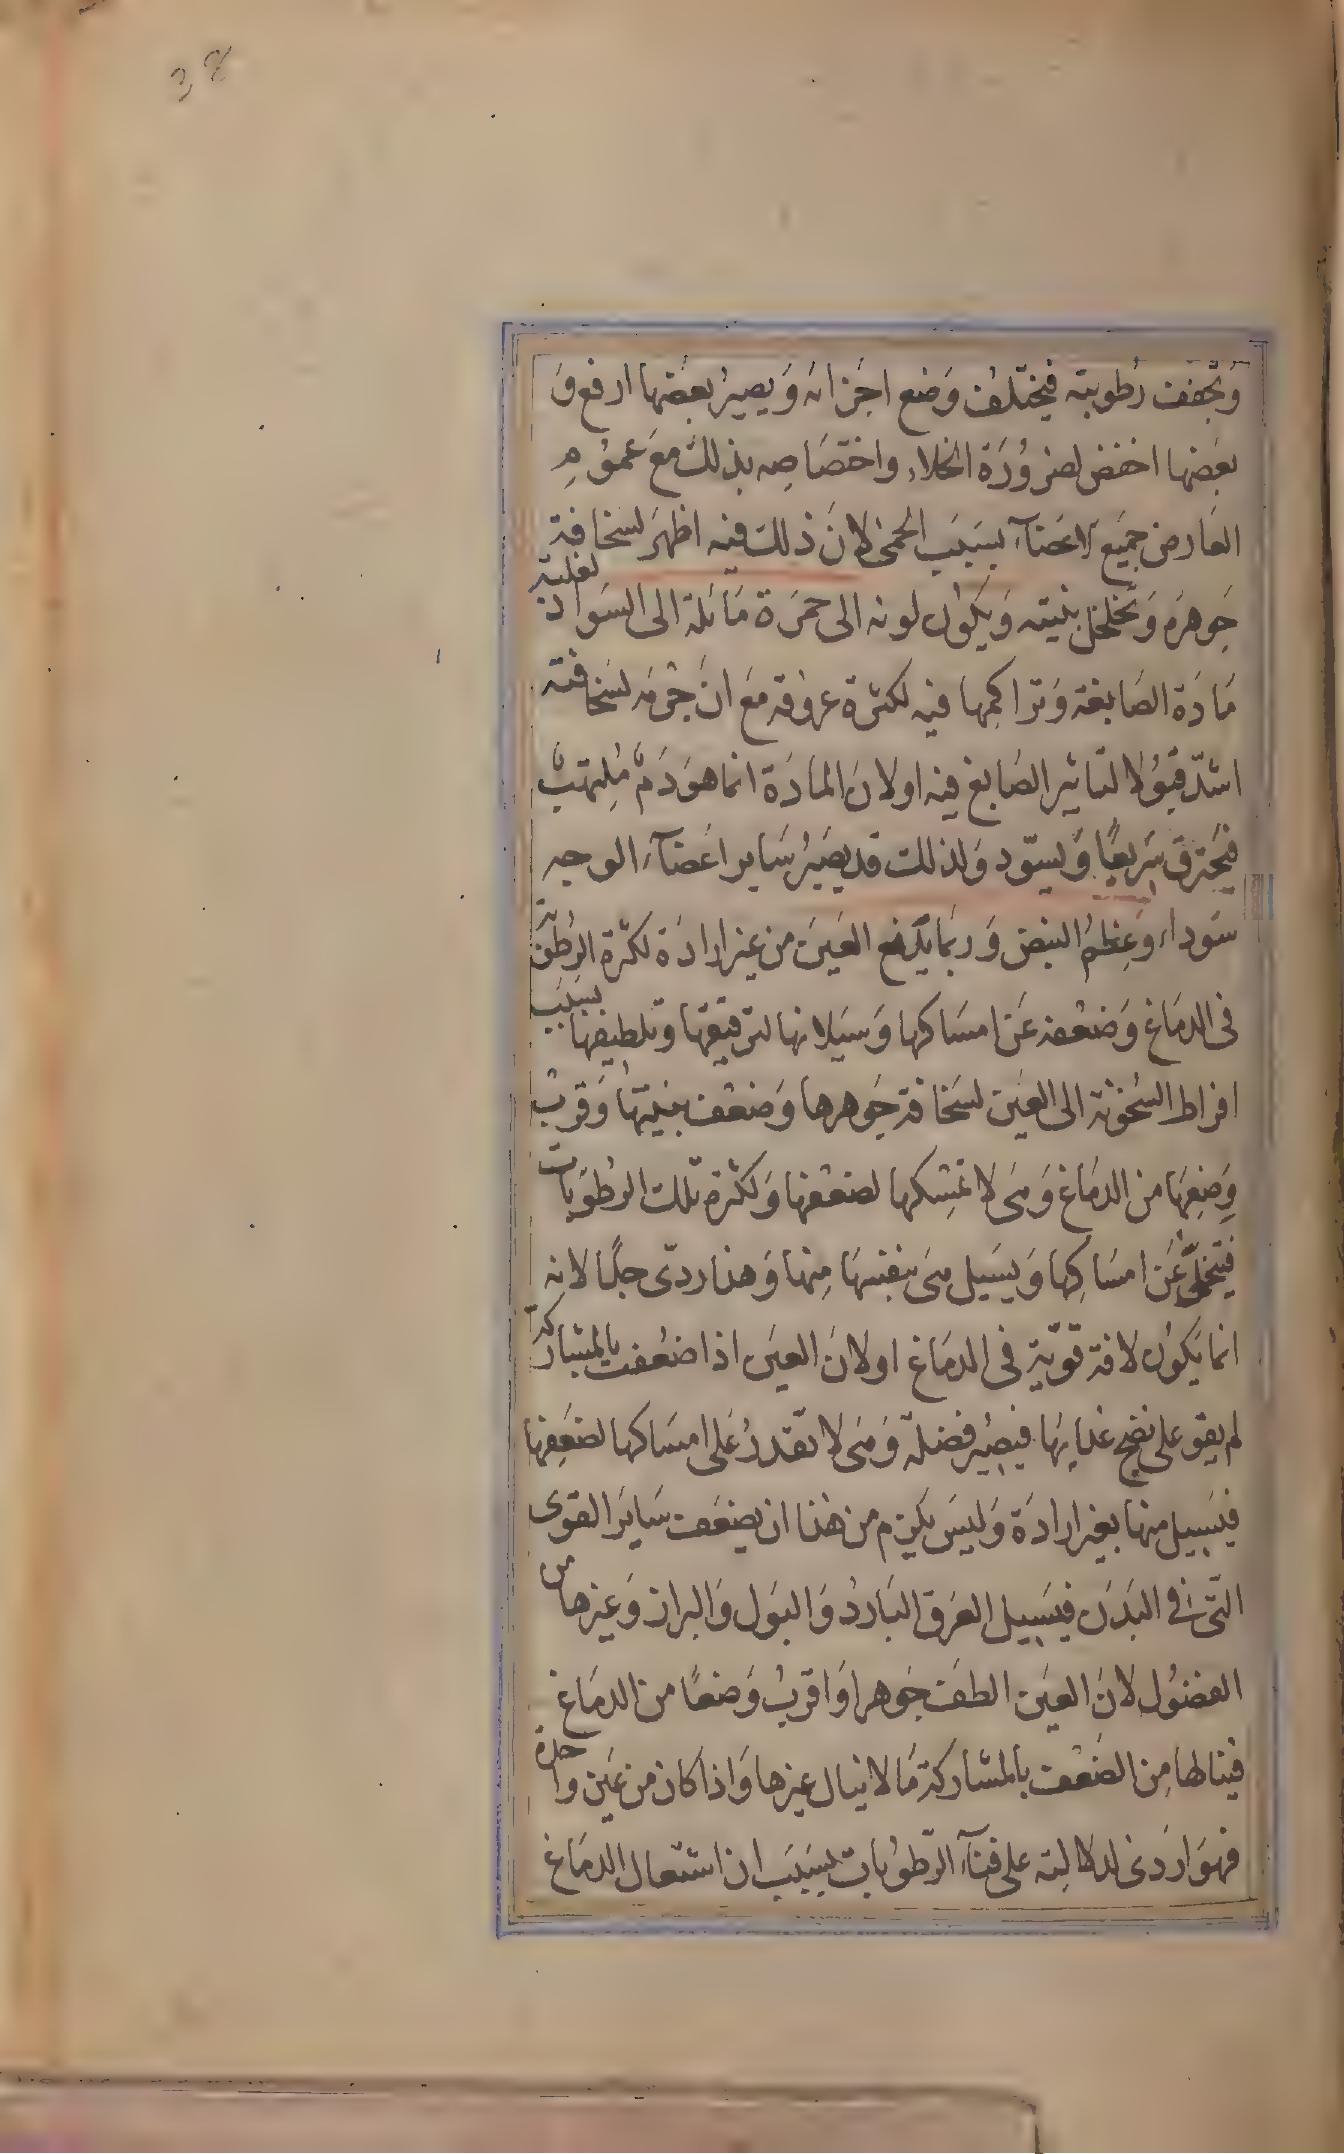 38
وَتجفف رُطوبته فيختلف وَضع اجزائه وَيصيرُ بعضها ارفع وَ
بعَضها اخفض لضرُورَة الخلاء واختصَاصه بذلك مَع عمُومِ
العَارض جميَع الاعضآء بسَبَب الحمى لانَ ذلك فيه اظهرَ لسَخافة
جَوهرَه وَتخلخل بنيته وَيكوُن لونه الى حمرَة مَائلة الى السَواد لغلبة
مَادَة الصَابغة وَتراكمها فيه لكثرة عروقه مَع انَ جرمَه لسَخَافته
اشدّ قبوُلا لتاثير الصَابغ فيه اولان المادَة انما هوَ دَمٌ مُلتهبٌ
فيَحترق سَريعًا وَيسوّد وَلذلك قد يصَيرُ سَاير اعَضآء الوجه
سَوداء وعِظمُ النبض وَربمَا يَدمَع العَينَ من غير ارادَة لكثرة الرطوبة
فى الدمَاغ وَضعفه عَن امسَاكها وَسَيلانها لترقيقها وتلطيفها بسَبَب
افراط السُخونة الى العَين لسَخافة جَوهرها وَضعف بنيتها وَقربُ
وَضِعهَا من الدمَاغ وَهىَ لا تمسِكها لضعفها وَلكثرة تلك الرطوبَات
فتتخلىّ عَن امسَاكِها وَيسَيل هىَ بنفسِهَا مِنها وَهذا ردّى جدًا لانه
انما يَكوُن لافة قوّية فى الدمَاغ اولانَ العينَ اذا ضعُفت بالمشاركة
لم يقو على نضج غذايِهَا فيصيُر فضلة وَهىَ لا تقدرُ عَلى امسَاكها لضعَفِها
فيَسيل منها بغير ارادَة وَليسَ يَلزم من هذا ان يضعَف سَايرَ القوى
التّى فى البَدَن فيسَيل العَرق البَاردُ وَالبَول وَالبراز وَغيرها من
الفضوُل لانَ العَين الطَف جَوهرا وَاقربُ وَضعًا من الدمَاغ
فينالها مِن الضَعف بالمشاركة مَا لا ينال غيرها وَاذا كان من عَين واحدة
فهوَ ارَدى لدلالِته على فنآء الرّطوُبات بسَبَب ان اشتعال الدمَاغ